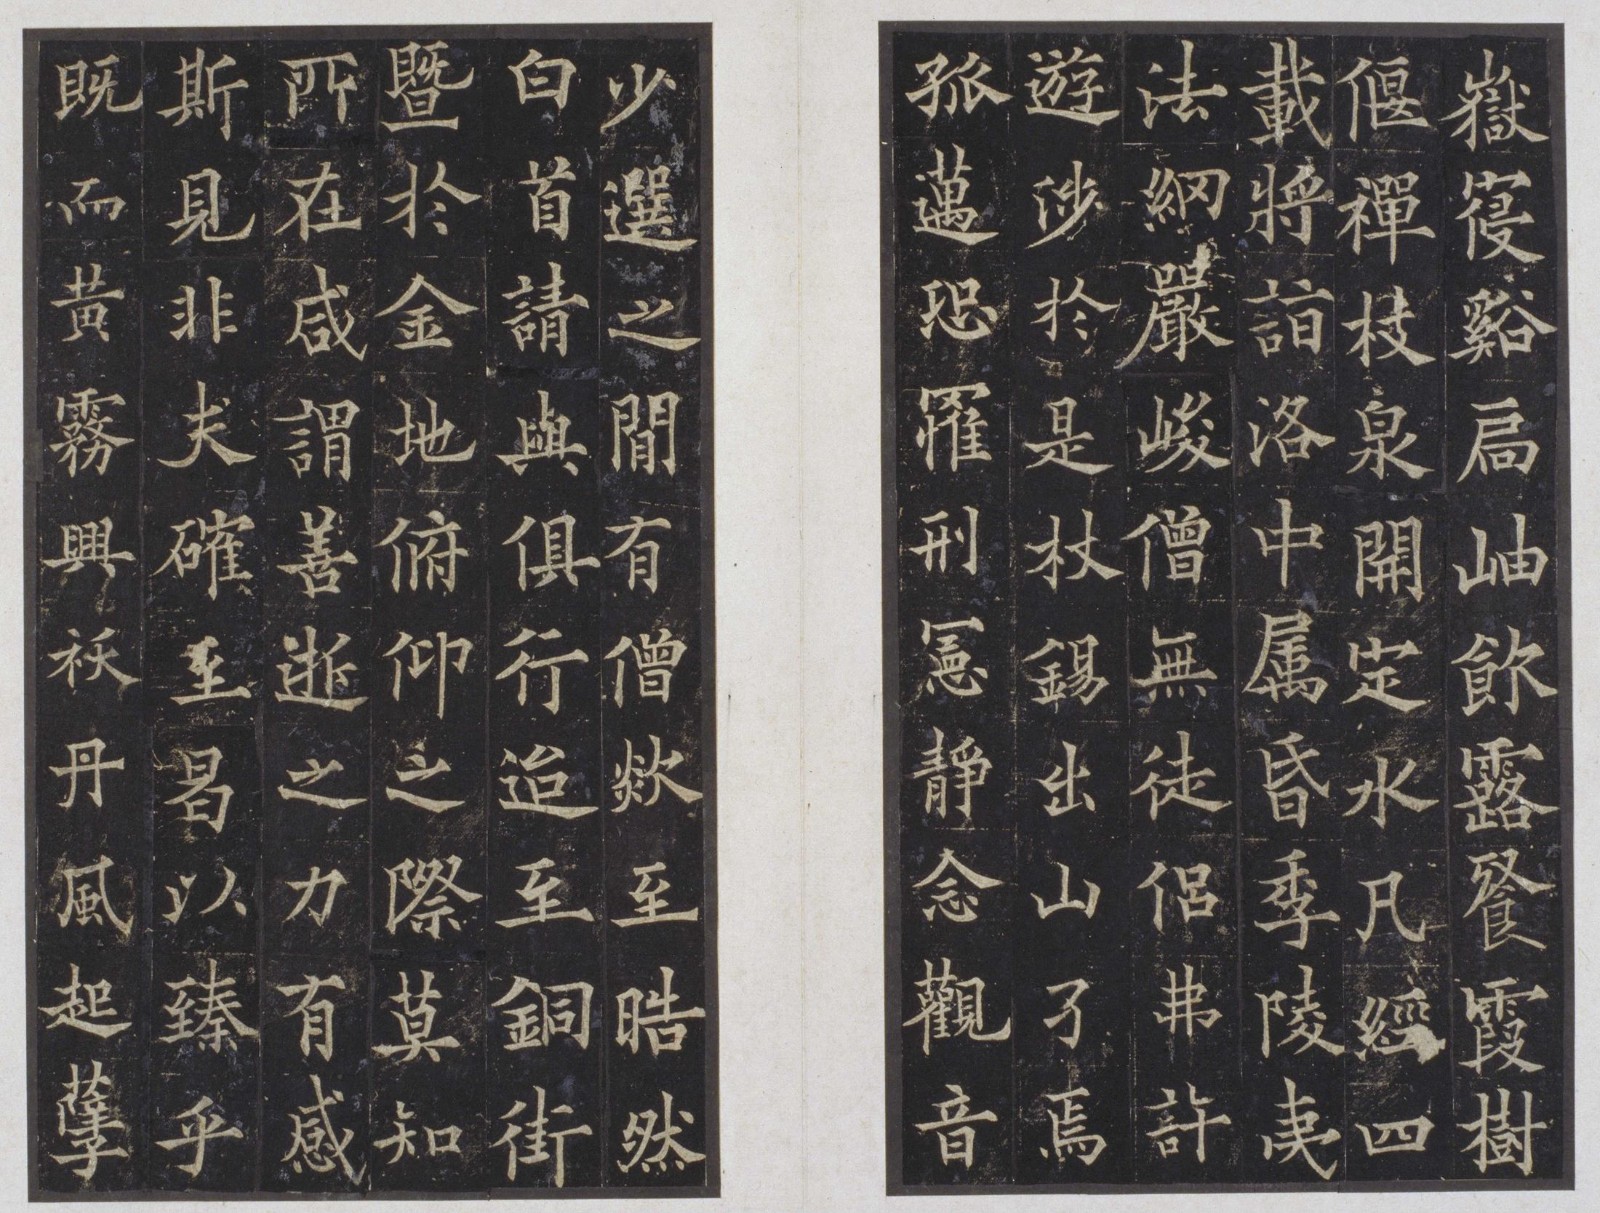 嶽寑谿扃岫飲露餐霞樹
偃禪枝泉開定水凡經四
載將詣洛中属昏季陵夷
法網嚴峻僧無徒侶弗許
遊涉於是杖錫出山孑焉
孤邁恐罹刑憲靜念觀音
少選之間有僧欻至晧然
白首請與俱行迨至銅街
暨於金地俯仰之際莫知
所在咸謂善逝之力有感
斯見非夫確至曷以臻乎
既而黃霧興祅丹風起孽